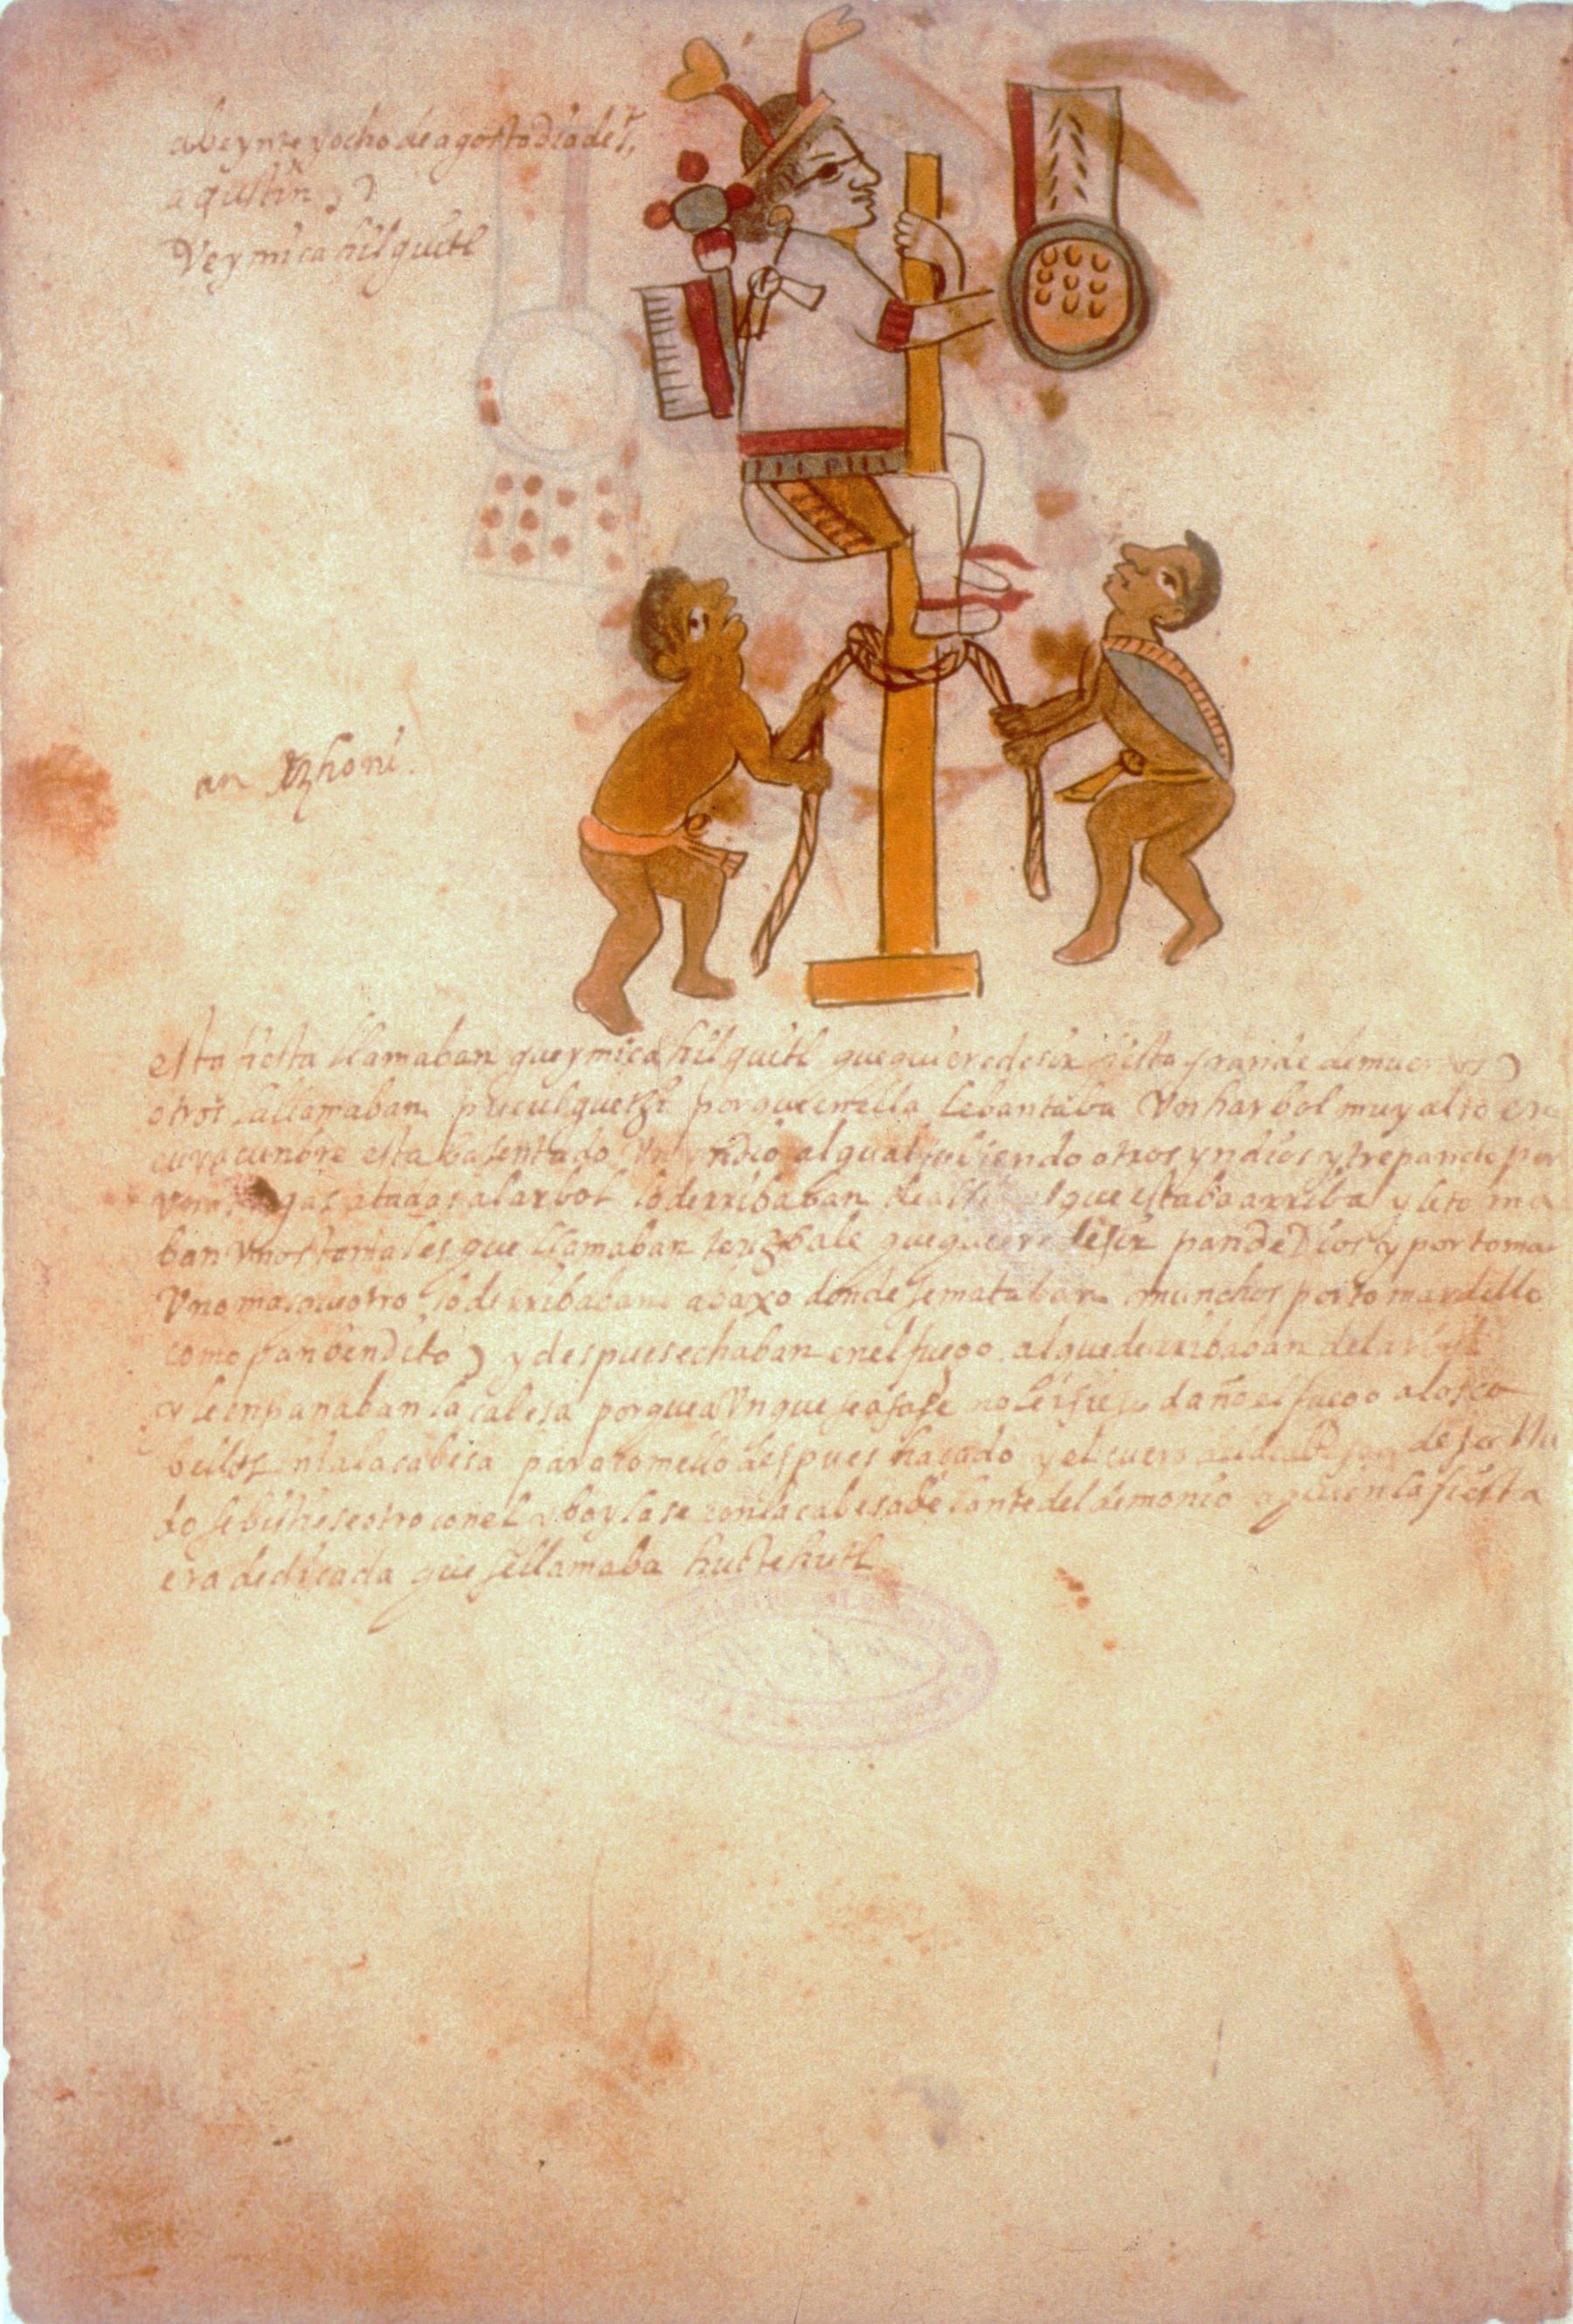 abeynte y ocho de agosto dia de S.
agustin
Veymicahilguitl
an
esta fiesta llamaban gueymicahilguitl que quiere desir fiesta grande de muertos
otros la llamaban porque en ella lebantaba Vn harbol muy alto en
cuya cunbre estaba sentado Vn yndio al qual subiendo otros yndios y trepando por
Vnas atadas al arbol lo derribaban de alli que estaba arriba y le toma
ban Vnos tamales que llamaban que quiere desir pan de Dios y por tomar
Vno mas que otro lo derribaban abaxo donde se mataban munchos por tomar dello
como pan bendito y despues echaban en el fuego al que derribaban del arbol
y le enpanaban la cabesa porque aVnque se asase no le hisiese daño el fuego a los ca
bellos ni a la cabesa para comello despues hasado y el cuero
do se bistiese otro con el y baylase con la cabesa delante del demonio a quien la fiesta
era dedicada que se llamaba